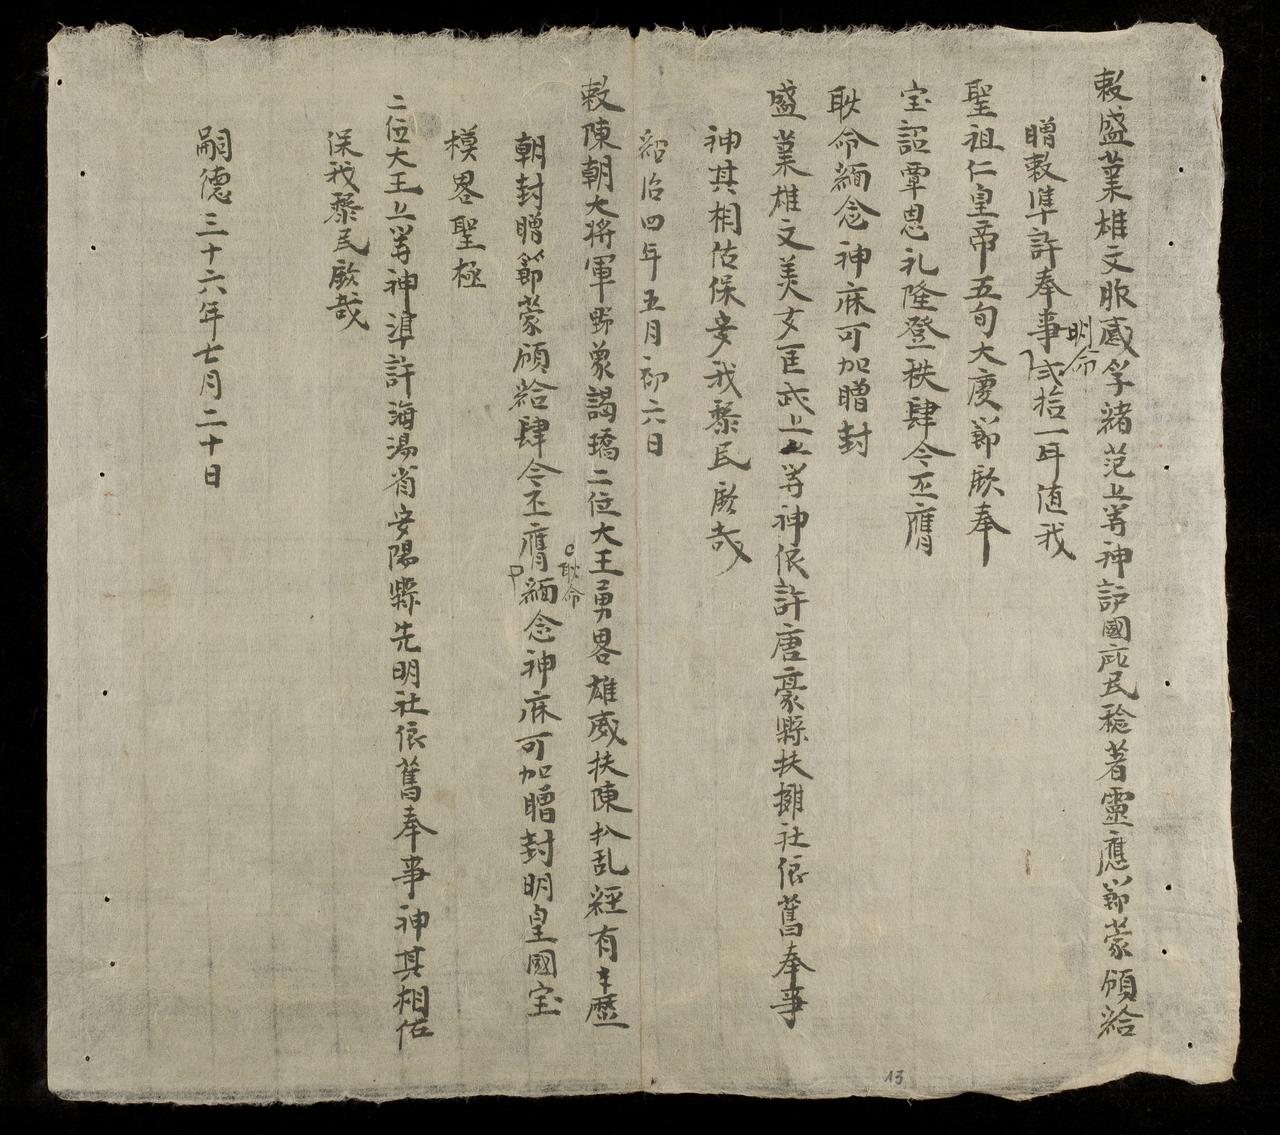 敕盛業雄文昭威孚緒范上等神護國庇民稔著靈應節蒙頒給
贈敕準許奉事明命弍拾一年值我
聖祖仁皇帝五旬大慶節欽奉
宝詔覃恩礼隆登秩肆今丕膺
耿命緬念神庥可加贈封
盛業雄文美丈匡武上上等神依許唐豪縣扶擁社依舊奉事
神其相佑保安我黎民欽哉
紹治四年五月初六日
敕陳朝大將軍野象謁驕二位大王勇畧雄威扶陳扒乱經有歷
朝封贈節蒙頒給肆今丕膺耿命緬念神庥可加贈封明皇國宝
模畧聖極
二位大王上等神準許海陽省安陽縣先明社依舊奉事神其相佑
保我黎民欽哉
嗣德三十六年七月二十日
13